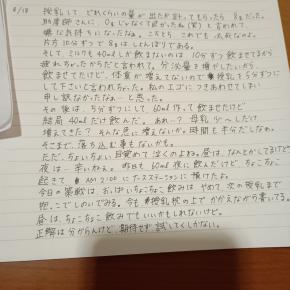 8/18 授乳して どれくらいの量が出たか計ってもらうと 8gだった。
助産師さんに 0gじゃなくて良かったね(笑) と言われて
嫌な気持ちになったなぁ。こちとら これでも 必死なのよ。
片方10分ずつで 8gは しょんぼりである。
そして ミルクも 40mLしか飲まないのは 10分ずつ飲ませてるから
疲れちゃったからだと言われて。分泌量を増やしたいから
飲ませてたけど、体重が増えてないので 授乳を5分ずつに
して下さいと言われちゃった。私のエゴにつきあわせてしまい
申し訳なかったなぁ…と思った。
その後は、5分ずつにして 40mL作って飲ませたけど
結局 40mLだけ飲んだ。あれ…? 母乳 少〜しだけ
増えてきた? そんな急に増えないか。時間も半分だしなぁ。
そこまで、落ち込む事もないかも。
ただ、ちょいちょい目覚めて泣くのよね。昼は、なんとかしてるけど
夜は…辛いねぇ。昨日も 60mL 夜に飲んだけど ちょこちょこ
起きて AM 2:00にナースステーションに預けたよ。
今日の 作戦は おっぱいちょこちょこ飲みは やめて、次の授乳まで
抱っこでしのいでみる。今も 授乳枕の上で かかえながら書いてるぞ
昼は、ちょこちょこ飲みでもいいかもしれないけど。
正解は分からんけど 期待せず試してくしかない。